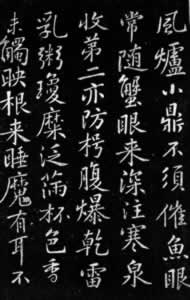 風爐小鼎不須催魚眼
常隨蟹眼來深注寒泉
收第二亦防枵腹爆乾雷
乳粥瓊糜泛滿杯色香
未觸映根来睡魔有耳不